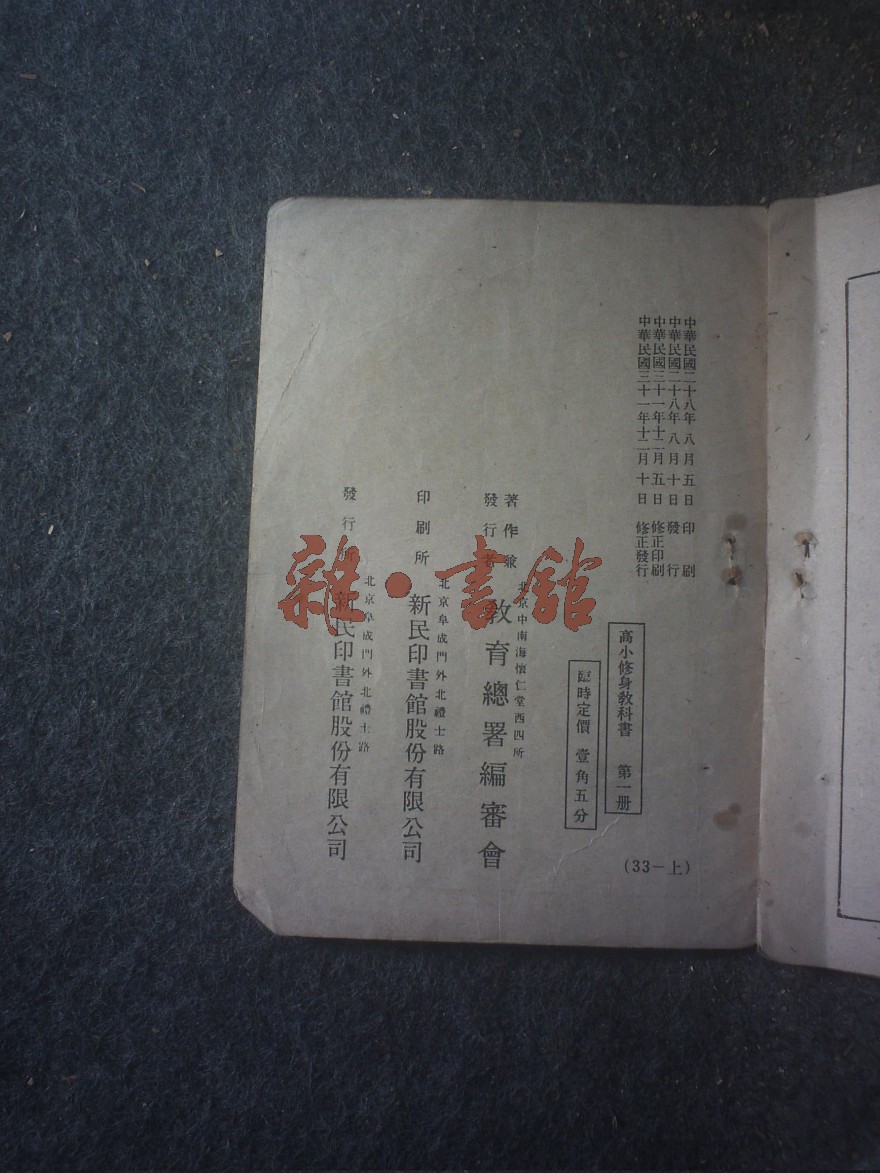 中華民國二十八年八月五日印刷
中華民國二十八年八月十日發行
中華民國三十一年十二月五日修正印刷
中華民國三十一年十二月十日修正發行
高小修身教科書 第一册
臨時定價 壹角五分
(33—上)
北京中南海懷仁堂西四所
著作兼
發行者
教育總署編審會
北京阜成門外北禮士路
印刷所 新民印書館股份有限公司
北京阜成門外北禮士路
發行所 新民印書館股份有限公司
雜·書館